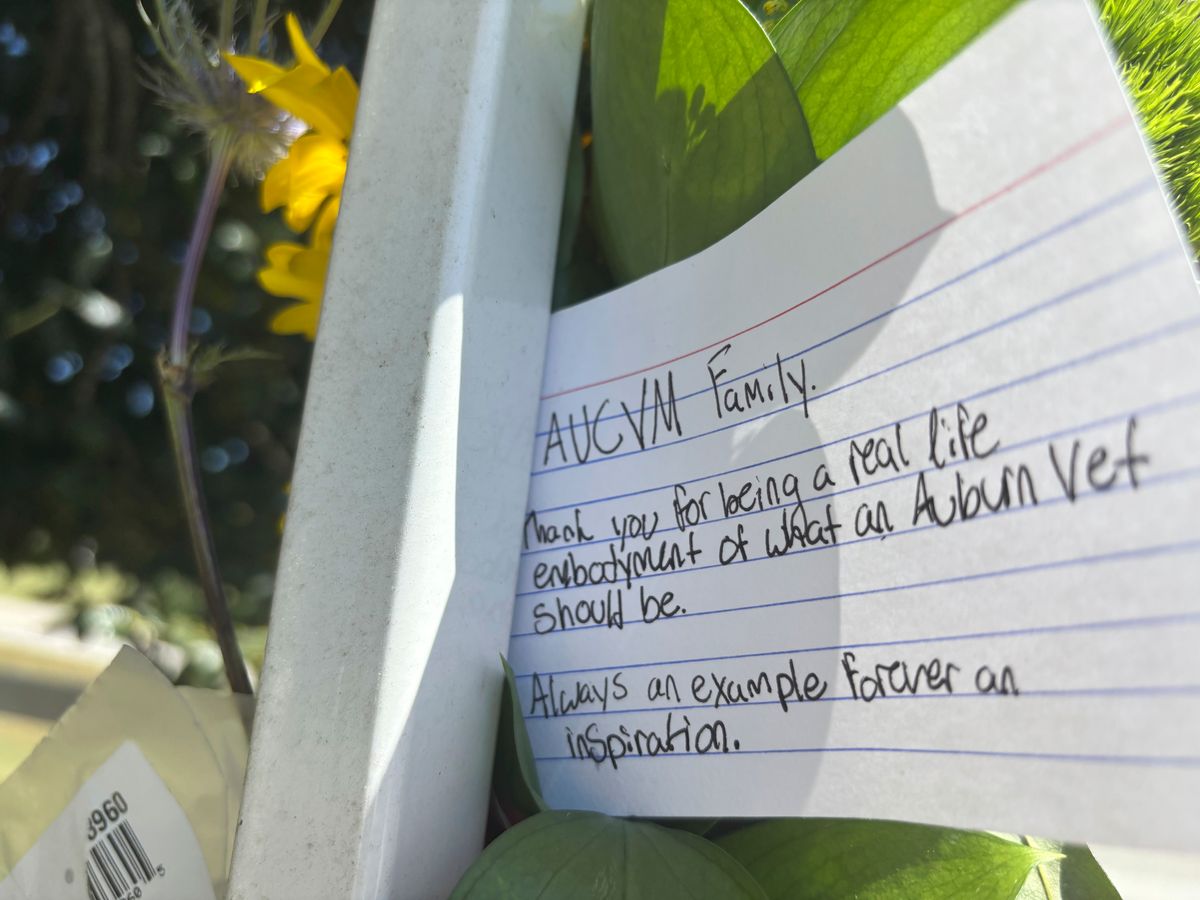 AUCVM Family.
Thank you for being a real life
embodyment of what an Auburn Vet
should be.
Always an example forever an
inspiration.
3960